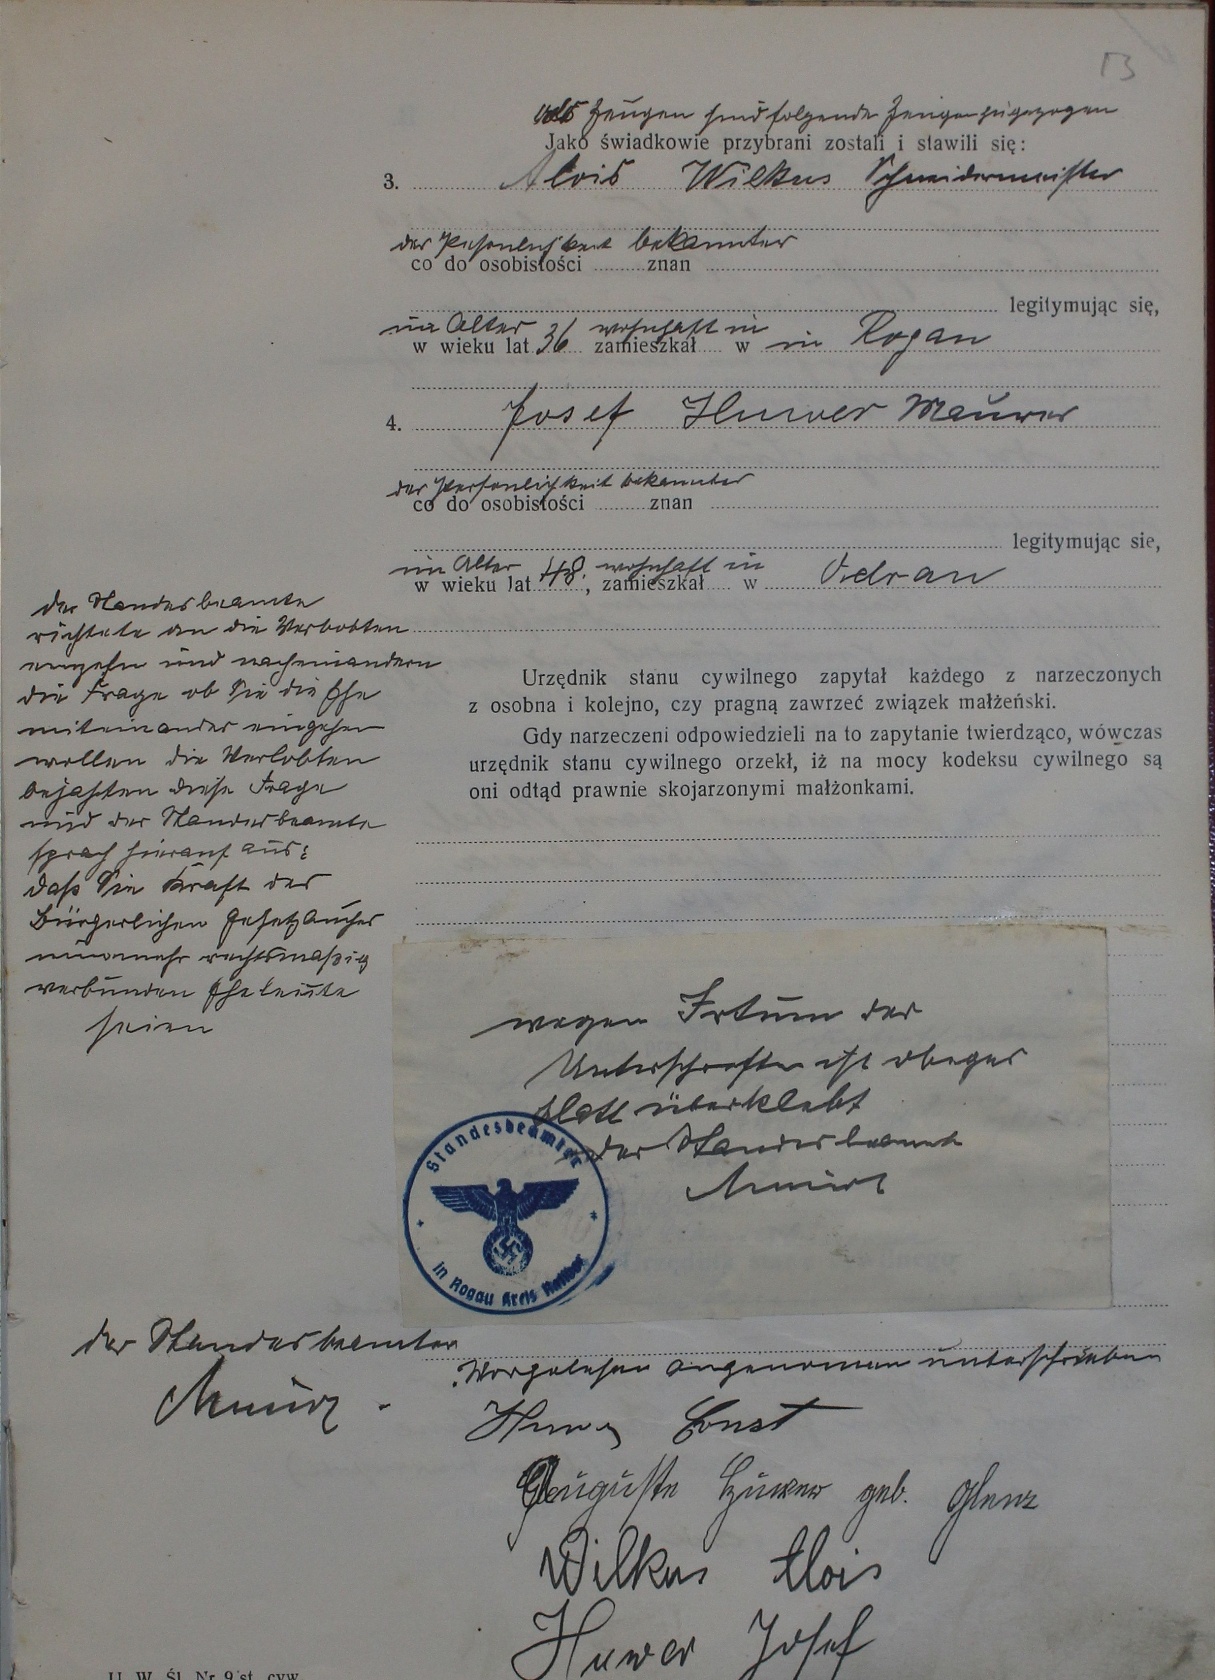 13
als Zeugen sind folgende Zeugen zugezogen
Jako świadkowie przybrani zostali i stawili się:
3. Alois Wilkus Schneidermeister
der Persönlichkeit bekannter
co do osobistości znan
legitymując się,
im Alter 36 wohnhaft in
w wieku lat zamieszkał w in Rogau
4. Josef Huwer Maurer
der Persönlichkeit bekannter
co do osobistości znan
legitymując sie,
im Alter 48. wohnhaft in
w wieku lat , zamieszkał w Odrau
der Standesbeamte
richtete an die Verlobten
einzeln und nacheinandern
die Frage ob Sie die Ehe
miteinander eingehen
wollen die Verlobten
bejahten diese Frage
und der Standesbeamte
sprach hierauf aus:
daß Sie Kraft des
Bürgerlichen Gesetzbuches
nunmehr rechtsmäßig
verbunden Eheleute
seien
Urzędnik stanu cywilnego zapytał każdego z narzeczonych
z osobna i kolejno, czy pragną zawrzeć związek małżeński.
Gdy narzeczeni odpowiedzieli na to zapytanie twierdząco, wówczas
urzędnik stanu cywilnego orzekł, iż na mocy kodeksu cywilnego są
oni odtąd prawnie skojarzonymi małżonkami.
wegen Irtum der
Unterschriften ist obeges
Blatt überklebt
der Standesbeamte
Standesbeamter
in Rogau Kreis Ratibor
der Standesbeamter
Vorgelesen angenommen unterschrieben
Huwer Ernst
Auguste Huwer geb. Glenz
Wilkus Alois
Huwer Josef
U. W. Śl. Nr 9/st. cyw.